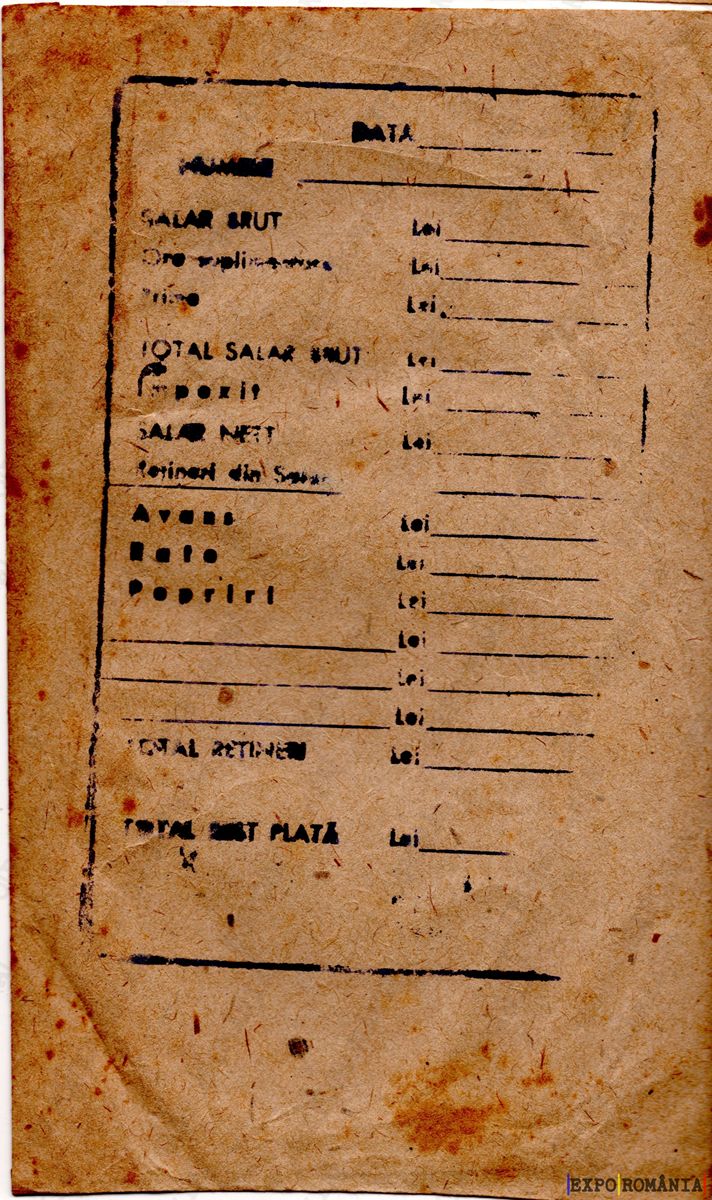 DATA
NUMELE
SALAR BRUT Lei
Ore suplimentare Lei
Prime Lei
TOTAL SALAR BRUT Lei
Impozit Lei
SALAR NETT Lei
Rețineri din Salar
Avans Lei
Rate Lei
Popriri Lei
Lei
Lei
Lei
TOTAL REȚINERI Lei
TOTAL REST PLATĂ Lei
EXPO ROMÂNIA